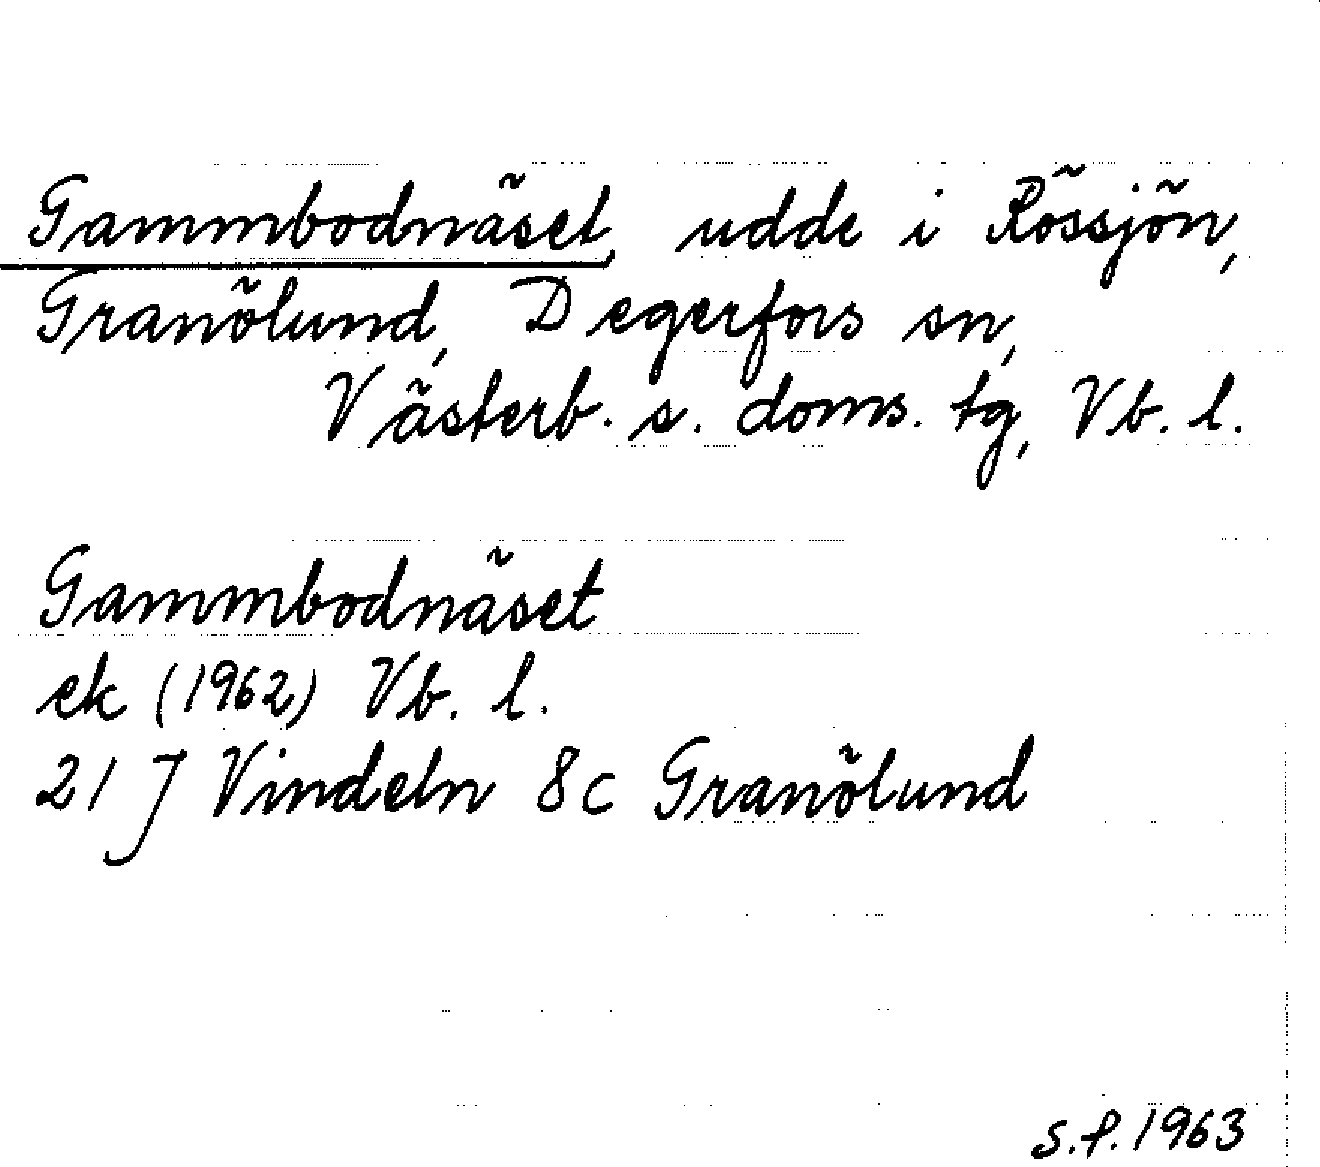 Gammbodnäset, udde i Rössjön,
Granölund, Degerfors sn,
Västerb. s. doms. tg, Vb. l.
Gammbodnäset
ek (1962) Vb. l.
21 J Vindeln 8c Granölund
s.f. 1963